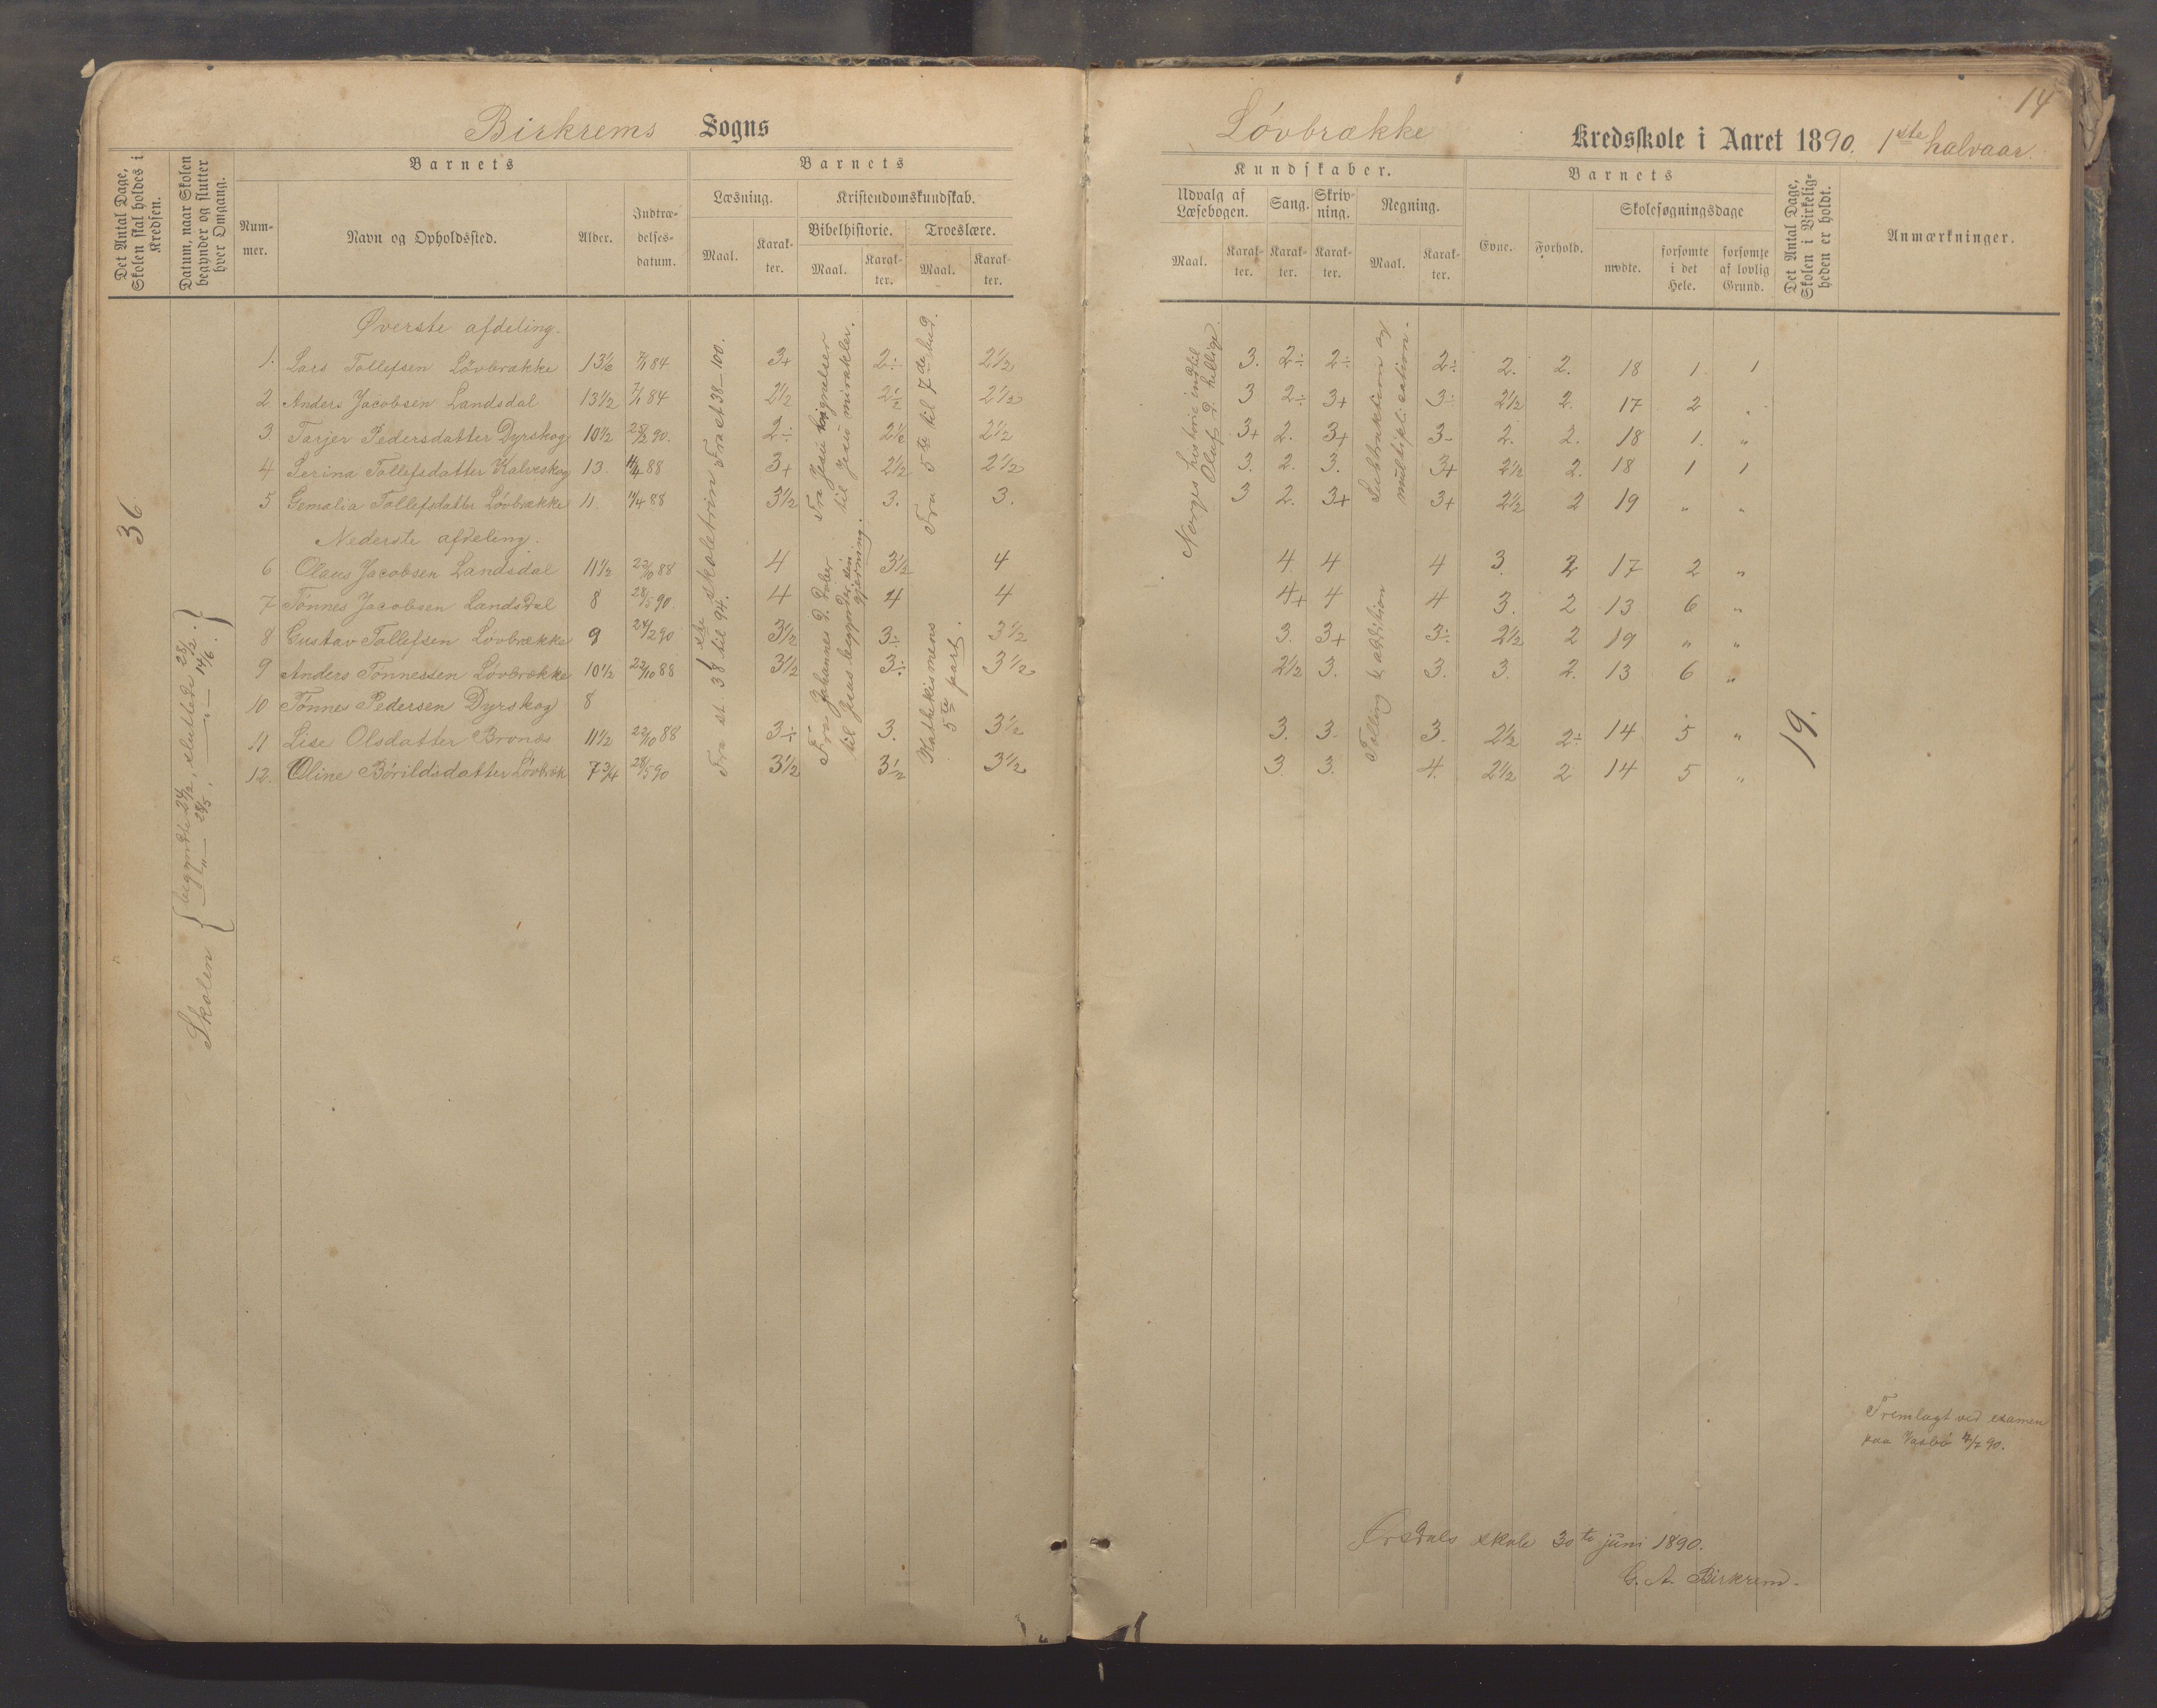 14
Birkrems Sogns
Løvbrække Kredsskole i Aaret 1890. 1ste halvaar.
Det Antal Dage, Skolen skal holdes i Kredsen.
Datum, naar Skolen begynder og slutter hver Omgang.
Barnets
Nummer.
Navn og Opholdssted.
Alder.
Indtrædelsesdatum.
Barnets
Læsning.
Maal.
Karakter.
Kristendomskundskab.
Bibelhistorie.
Maal.
Karakter.
Troeslære.
Maal.
Karakter.
Kundskaber.
Udvalg af Læsebogen.
Maal.
Karakter.
Sang.
Karakter.
Skrivning.
Karakter.
Regning.
Maal.
Karakter.
Barnets
Evne.
Forhold.
Skolesøgningsdage
mødte.
forsømte i det Hele.
forsømte af lovlig Grund.
Det Antal Dage, Skolen i Virkeligheden er holdt.
Anmærkninger.
36
Skolen { begyndte 24/2, sluttede 28/2.
„ — 28/5, — „ — 14/6. }
Øverste afdeling.
1. Lars Tollefsen Løvbrække 13½ 7/1 84 3+ 2÷ 2½ 3. 2÷ 2÷ 2÷ 2. 2. 18 1 1
2 Anders Jacobsen Landsdal 13½ 7/1 84 2½ 2½ 2½ 3 2÷ 3+ 3÷ 2½ 2. 17 2 „
3. Tarjer Pedersdatter Dyrskog 10½ 25/2 90. 2÷ 2½ 2½ 3+ 2. 3+ 3- 2. 2. 18 1. „
4 Serina Tollefsdatter Kalveskog 13. 11/4 88 3+ 2½ 2½ 3. 2. 3. 3+ 2½ 2. 18 1 1
5 Gemalia Tollefsdatter Løvbrække 11. 11/4 88 3½ 3. 3. 3 2. 3+ 3+ 2½ 2 19 „ „
Nederste afdeling.
6 Olaus Jacobsen Landsdal 11½ 22/10 88 4 3½ 4 4 4 4 3. 2 17 2 „
7 Tønnes Jacobsen Landsdal 8 28/5 90. 4 4 4 4+ 4 4 3. 2 13 6 „
8 Gustav Tollefsen Løvbrække 9 24/2 90 3½ 3÷ 3½ 3. 3+ 3÷ 2½ 2 19 „ „
9 Anders Tønnessen Løvbrække 10½ 22/10 88 3½ 3÷ 3½ 2½ 3. 3. 3. 2. 13 6 „
10 Tønnes Pedersen Dyrskog 8
11 Lise Olsdatter Bronæs 11½ 22/10 88 3÷ 3. 3½ 3. 3. 3. 2½ 2÷ 14 5 „
12. Oline Børildsdatter Løvbræk 7¾ 28/5 90 3½ 3½ 3½ 3 3. 4. 2½ 2 14 5 „
Fra st 38—100.
1ste skoletrin
Fra st 38 til 94.
Fra Jesu lignelser til Jesu mirakler.
Fra Johannes d. døber til Jesus begynder sin gjerning.
Fra 5te til 7de bud.
Kathekismens 5te part.
Norges historie indtil Oluf d. hellige.
Subtraktion og multiplication.
Tælling & addition
19.
Fremlagt ved examen
paa Vasbø 4/7 90.
Ørsdals skole 30te juni 1890.
G. A. Birkrem.